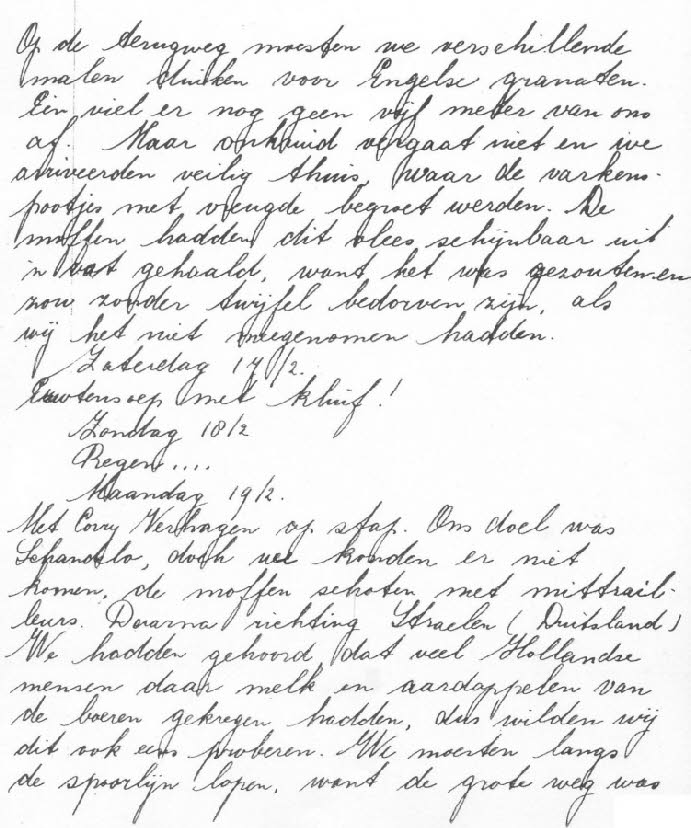 Op de terugweg moesten we verschillende
malen duiken voor Engelse granaten.
Eén viel er nog geen vijf meter van ons
af. Maar onkruid vergaat niet en we
arriveerden veilig thuis, waar de varkens-
pootjes met vreugde begroet werden. De
moffen hadden dit vlees schijnbaar uit
'n vat gehaald, want het was gezouten en
zou zonder twijfel bedorven zijn, als
wij het niet meegenomen hadden.
Zaterdag 17/2.
Erwtensoep met kluif!
Zondag 18/2
Regen....
Maandag 19/2.
Met Corry Verhagen op stap. Ons doel was
Schandelo, doch we konden er niet
komen, de moffen schoten met mittrail-
leurs. Daarna richting Straelen (Duitsland)
We hadden gehoord, dat veel Hollandse
mensen daar melk en aardappelen van
de boeren gekregen hadden, dus wilden wij
dit ook eens proberen. We moesten langs
de spoorlijn lopen, want de grote weg was